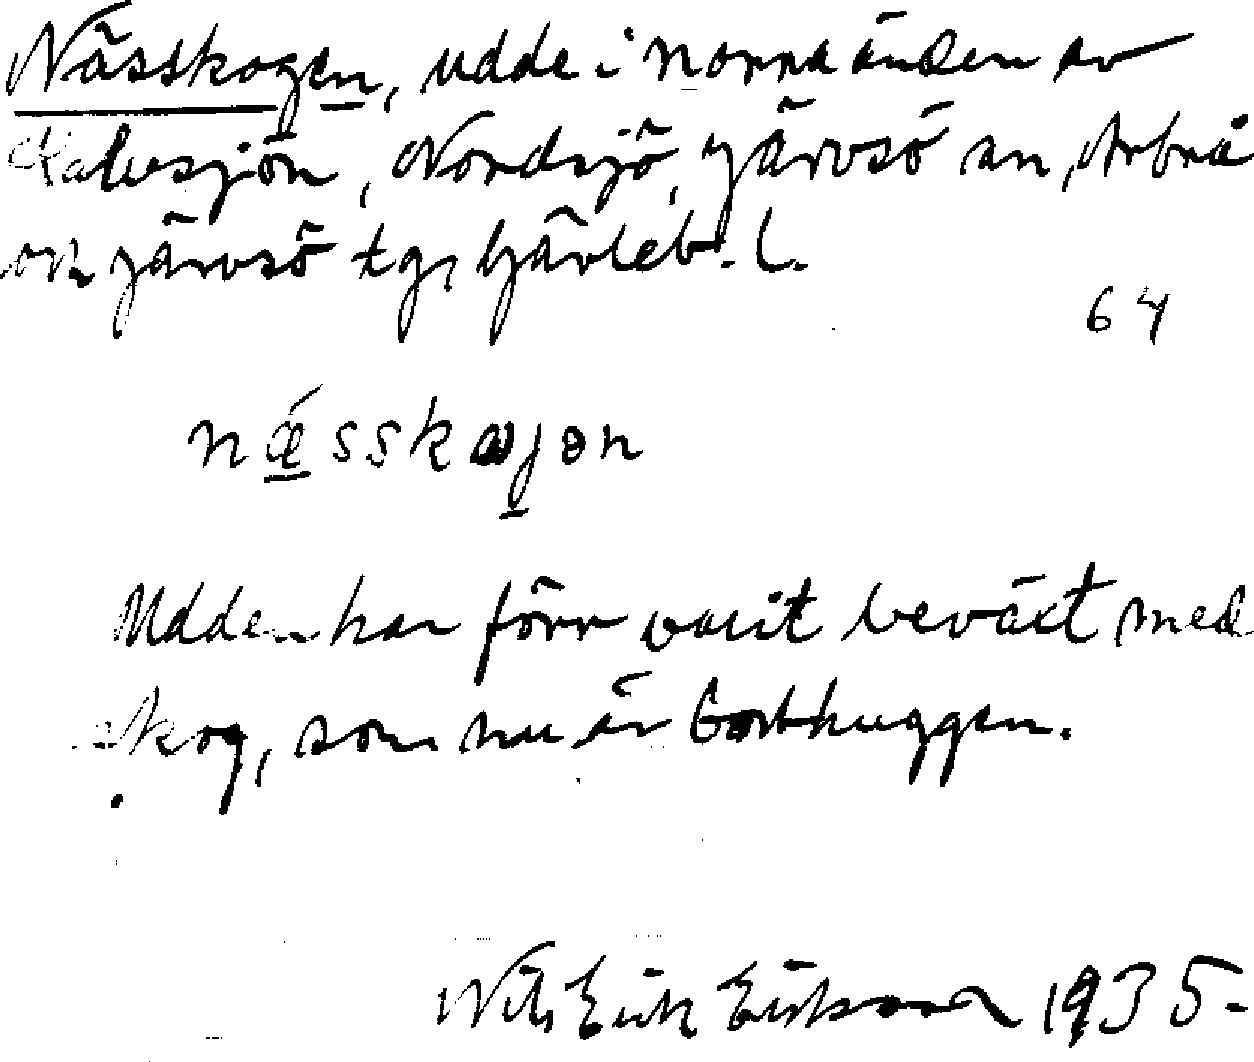 Nässkogen, udde i norra änden av
Kalvsjön, Nordsjö, Järvsö sn, Arbrå
och Järvsö tg, Gävleb. l.
64
nǽsskωjen
Udden har förr varit beväxt med
skog, som nu är borthuggen.
Nils Erik Eriksson 1935.